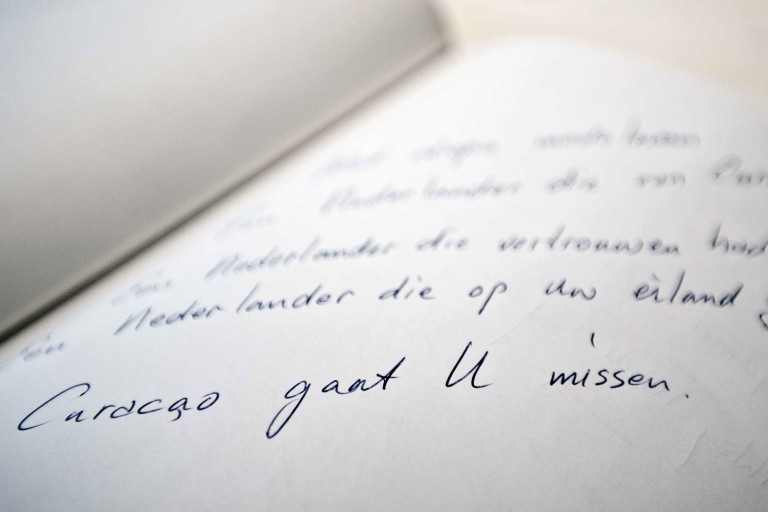 Nederlander die van
Een Nederlander die vertrouwen had
Een Nederlander die op uw eiland
Curaçao gaat U missen.